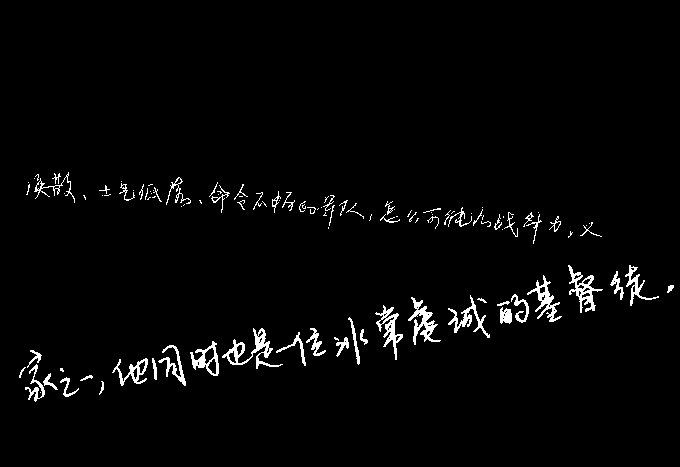 涣散、士气低落、命令不畅的军队,怎么可能有战斗力,又
家之一,他同时也是一位非常虔诚的基督徒。